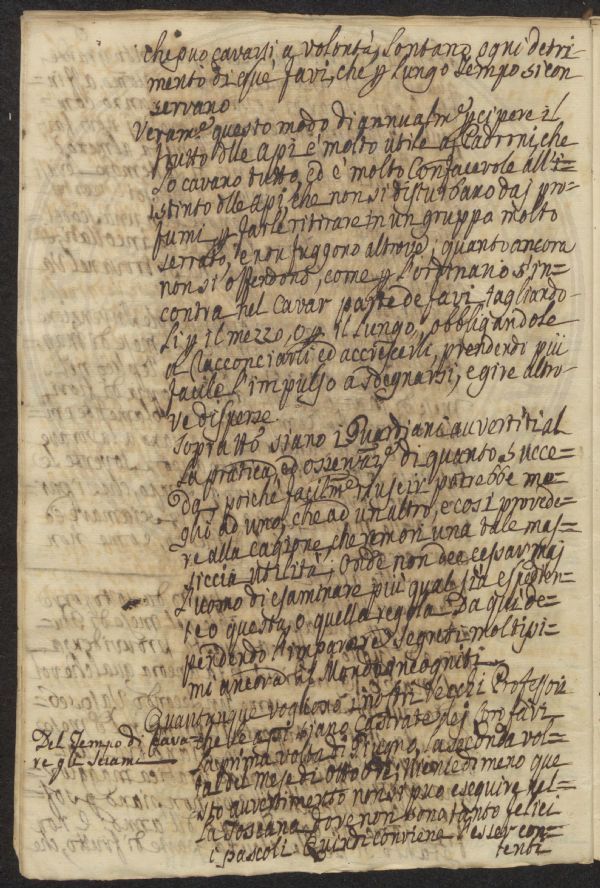 che può cavarsi a volontà, lontano ogni detri-
mento di que favi, che p lungo tempo si con
servano.
Veram.e questo modo di annualm.e pcipere il
frutto dlle Api è molto utile a Padroni, che
lo cavano tutto, ed è molto Confacevole all'i=
istinto dlle Api, che non si disturbano daj pro-
fumi p farle ritirare in un gruppo molto
serrato, e non fuggono altrove; quanto ancora
non si offendono, come p l'ordinario s'in=
contra nel Cavar parte de favi, tagliando-
li p il mezzo, o p il lungo, obbligandole
a Racconciarli ed accrescerli, prendendo più
facile l'impulso a sdegnarsi, e gire altro-
ve disperse.
Soprattto siano i Guardiani avvertiti al
la pratica, ed osservaz.e di quanto succe-
da, poiché facilm.e riuscir potrebbe me-
glio ad uno, che ad un altro, e così provede=
re alla cagione, che remori una tale mas-
siccia utilità; Onde non dee cessar maj
l'uomo di esaminare più qual sia espedien=
te o questa, o quella regola. Da qui de-
pendendo l'imparare segreti moltissi-
mi ancora al Mondo incogniti.
Quantunque vogliono i nostri Vecchi Professori
Del Tempo di Cava-
re gli Sciami
che le api siano Castrate dej loro favi
la prima volta di Giugno, la seconda vol-
ta del mese di Ottobre; Nientedimeno que
sto avvertimento non si può eseguire nel-
la Toscana, dove non sono tanto felici
i pascoli. Quindi conviene l'esser con=
tenti